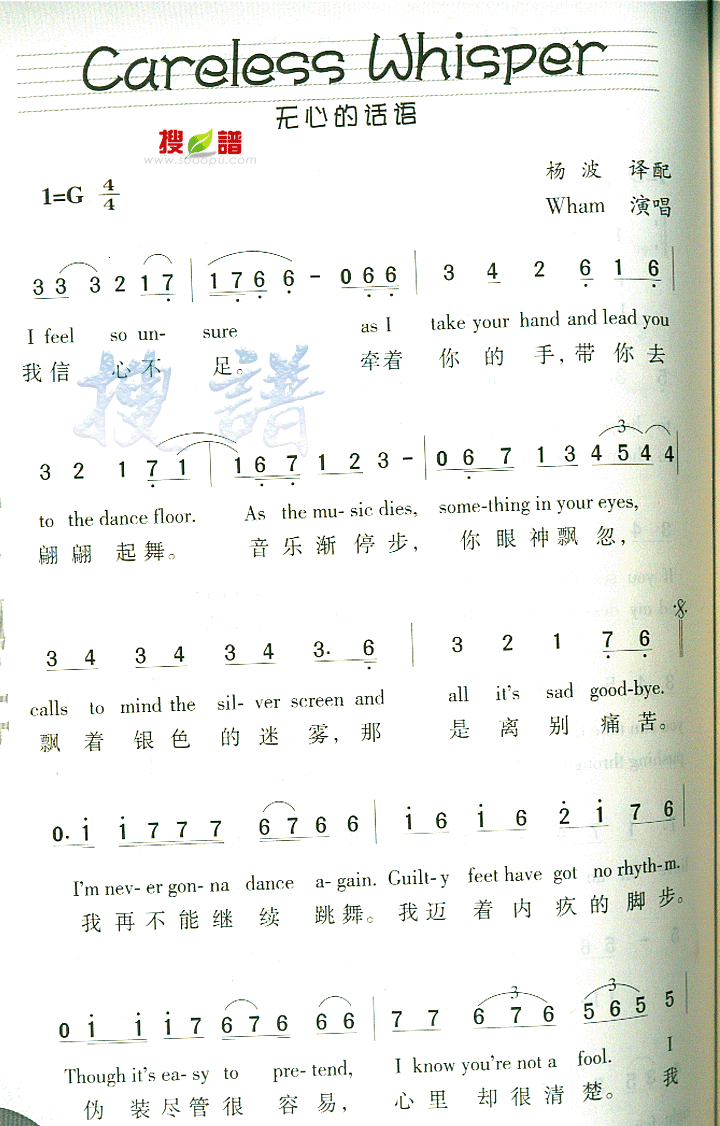 Careless Whisper
无心的话语
搜譜
www.sooopu.com
杨波 译配
1=G 4/4
Wham 演唱
3 3 3 2 1 7 | 1 7 6 6 - 0 6 6 | 3 4 2 6 1 6 |
I feel so un- sure as I take your hand and lead you
我信 心不 足。 牵着 你 的 手,带 你 去
搜譜
3 2 1 7 1 | 1 6 7 1 2 3 - | 0 6 7 1 3 4 5 4 4 |
to the dance floor. As the mu- sic dies, some-thing in your eyes,
翩 翩 起 舞。 音 乐 渐 停 步, 你 眼 神 飘 忽,
3 4 3 4 3 4 3. 6 | 3 2 1 7 6
calls to mind the sil- ver screen and all it's sad good-bye.
飘 着 银 色 的 迷 雾, 那 是 离 别 痛 苦。
0. 1 1 7 7 7 6 7 6 6 | 1 6 1 6 2 1 7 6 |
I'm nev- er gon- na dance a- gain. Guilt- y feet have got no rhy thm.
我 再 不 能 继 续 跳 舞。 我 迈 着 内 疚 的 脚 步。
0 1 1 1 7 6 7 6 6 6 | 7 7 6 7 6 5 6 5 5
Though it's ea- sy to pre- tend, I know you're not a fool. I
伪 装 尽 管 很 容 易, 心 里 却 很 清 楚。 我